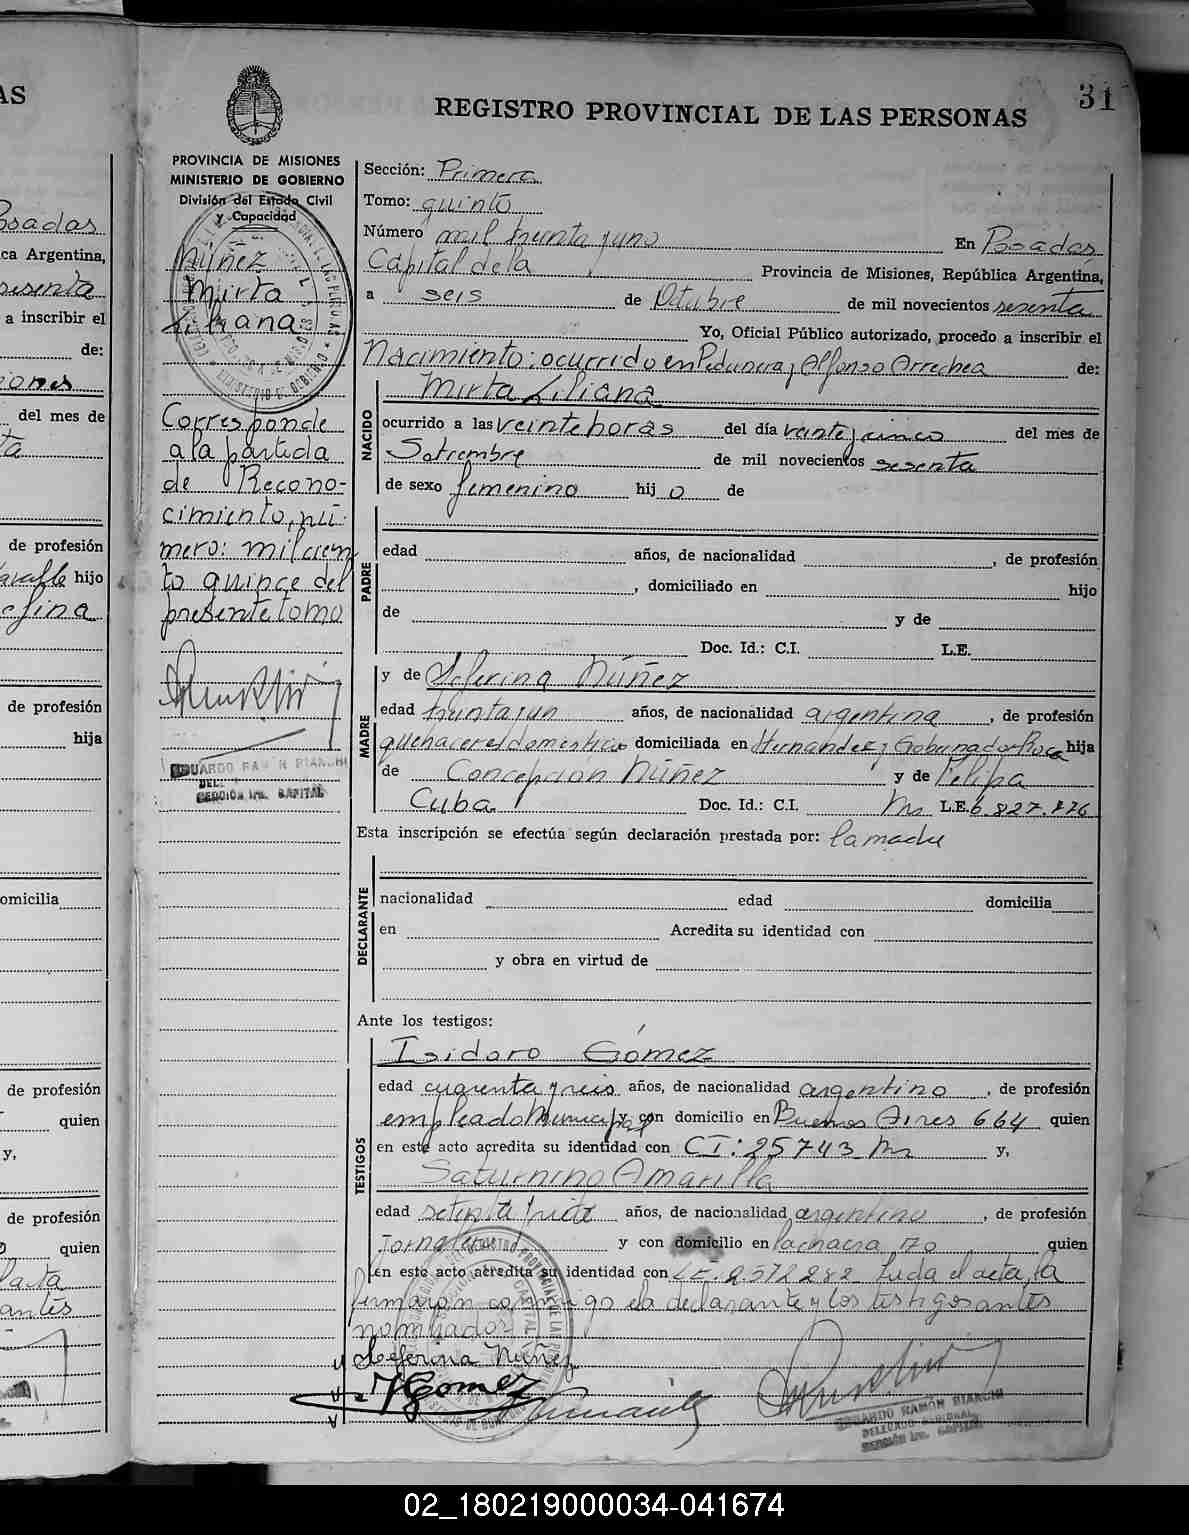 AS
REGISTRO PROVINCIAL DE LAS PERSONAS
31
PROVINCIA DE MISIONES
MINISTERIO DE GOBIERNO
División del Estado Civil
y Capacidad
Núñez
Mirta
Liliana
Corresponde
a la partida
de Recono-
cimiento, nú-
mero: mil cien
to quince del
presente tomo
EDUARDO RAMÓN BIANCHI
SECCIÓN 1ra. CAPITAL
Sección: Primera
Tomo: quinto
Número mil treinta y uno En Posadas
Capital de la Provincia de Misiones, República Argentina,
a seis de Octubre de mil novecientos sesenta
Yo, Oficial Público autorizado, procedo a inscribir el
Nacimiento: ocurrido en y Alfonso Arrechea de:
Mirta Liliana
NACIDO
ocurrido a las veinte horas del día veinte y cinco del mes de
Setiembre de mil novecientos sesenta
de sexo femenino hij o de
PADRE
edad años, de nacionalidad , de profesión
, domiciliado en hijo
de y de
Doc. Id.: C.I. L.E.
MADRE
y de Seferina Núñez
edad treinta y un años, de nacionalidad argentina , de profesión
quehaceres domésticos domiciliada en Hernandez y Gobernador Roca hija
de Concepción Núñez y de Felipa
Cuba Doc. Id.: C.I. L.E. 6.827.876
Esta inscripción se efectúa según declaración prestada por: la madre
DECLARANTE
nacionalidad edad domicilia
en Acredita su identidad con
y obra en virtud de
Ante los testigos:
TESTIGOS
Isidoro Gómez
edad cuarenta y seis años, de nacionalidad argentino , de profesión
empleado Municipal y con domicilio en Buenos Aires 664 quien
en este acto acredita su identidad con CI: 25743 y,
Saturnino Amarilla
edad setenta y siete años, de nacionalidad argentino , de profesión
Jornalero y con domicilio en la chacra 70 quien
en este acto acredita su identidad con L.E. 2572282 Leida el acta, la
firmaron conmigo la declarante y los testigos antes
nombrados
Seferina Núñez
Gomez
EDUARDO RAMÓN BIANCHI
DELEGADO
SECCIÓN 1ra. CAPITAL
02_180219000034-041674